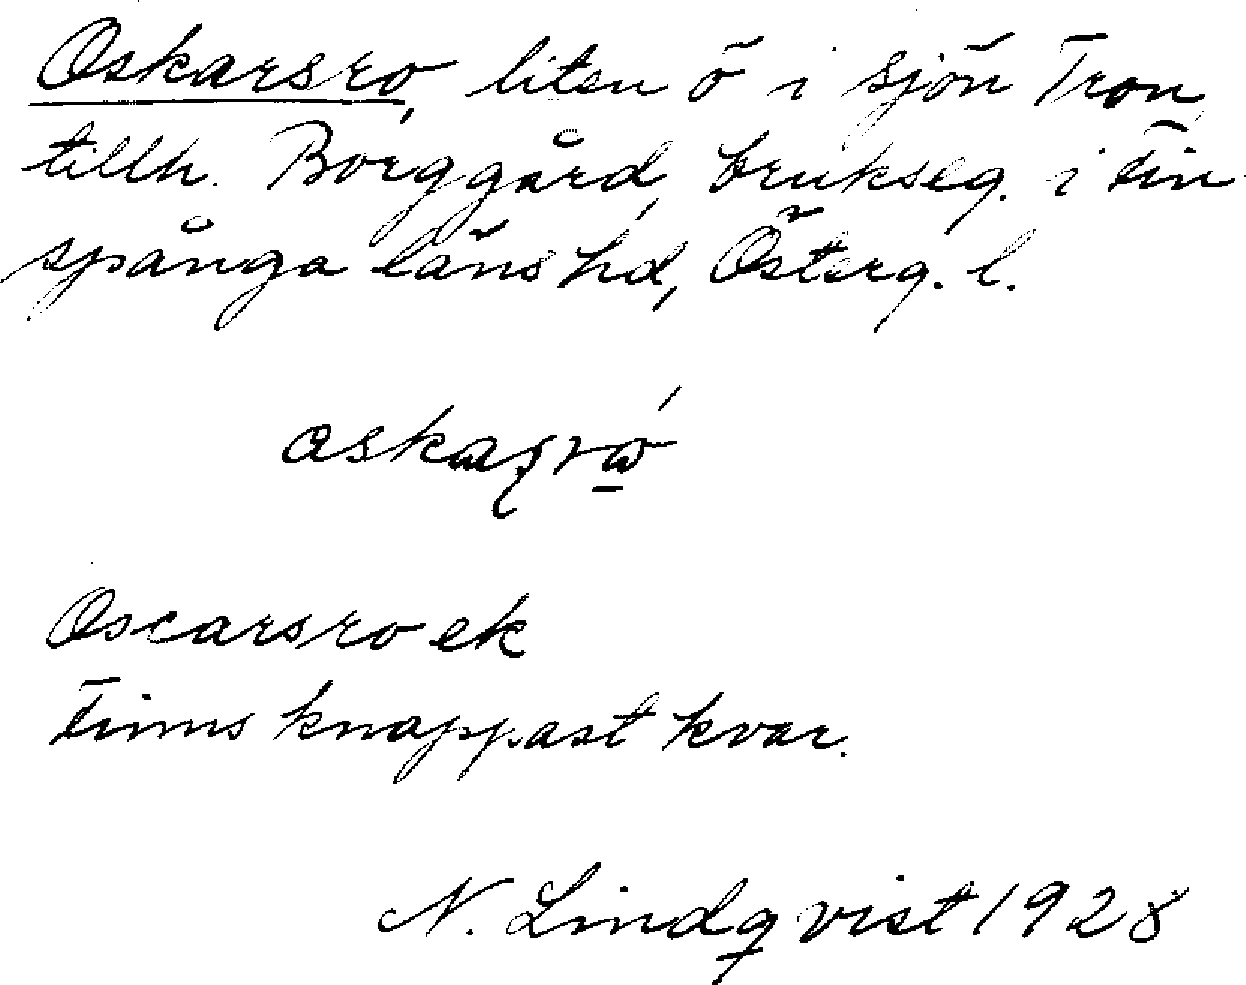 Oskarsro, liten ö i sjön Tron,
tillh. Borggård, brukseg. i Fin
spånga läns hd, Österg. l.
Oscarsro ek
Finns knappast kvar.
N. Lindqvist 1928